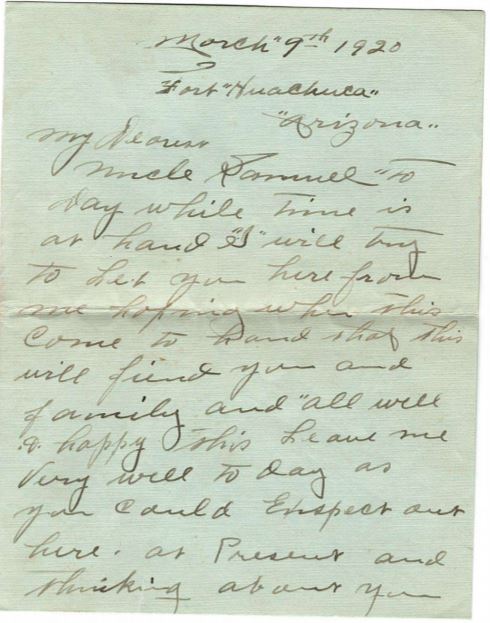 March "9th 1920
Fort "Huachuca"
"Arizona"
my Dearest
Uncle Samuel "To
day while time is
at hand "I" will try
to Let you here from
me hoping when this
Come to hand that this
will fiend you and
family and "all well
& happy this Leave me
Very well to day as
you Could Enspect out
here. at Present and
thinking about you